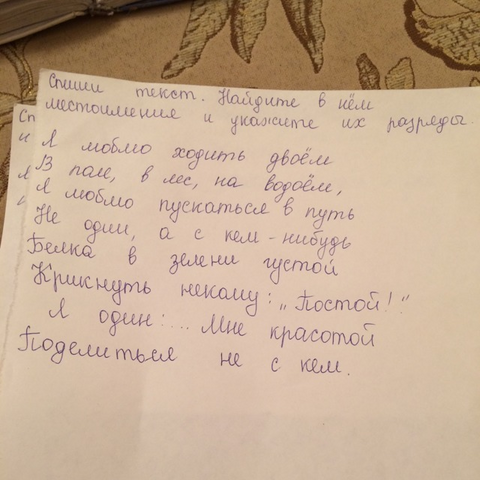 Спиши текст. Найдите в нём
местоимения и укажите их разряды.
Я люблю ходить двоём
В поле, в лес, на водоём,
Я люблю пускаться в путь
Не один, а с кем-нибудь
Белка в зелени густой
Крикнуть некому: „Постой!"
Я один:... Мне красотой
Поделиться не с кем.